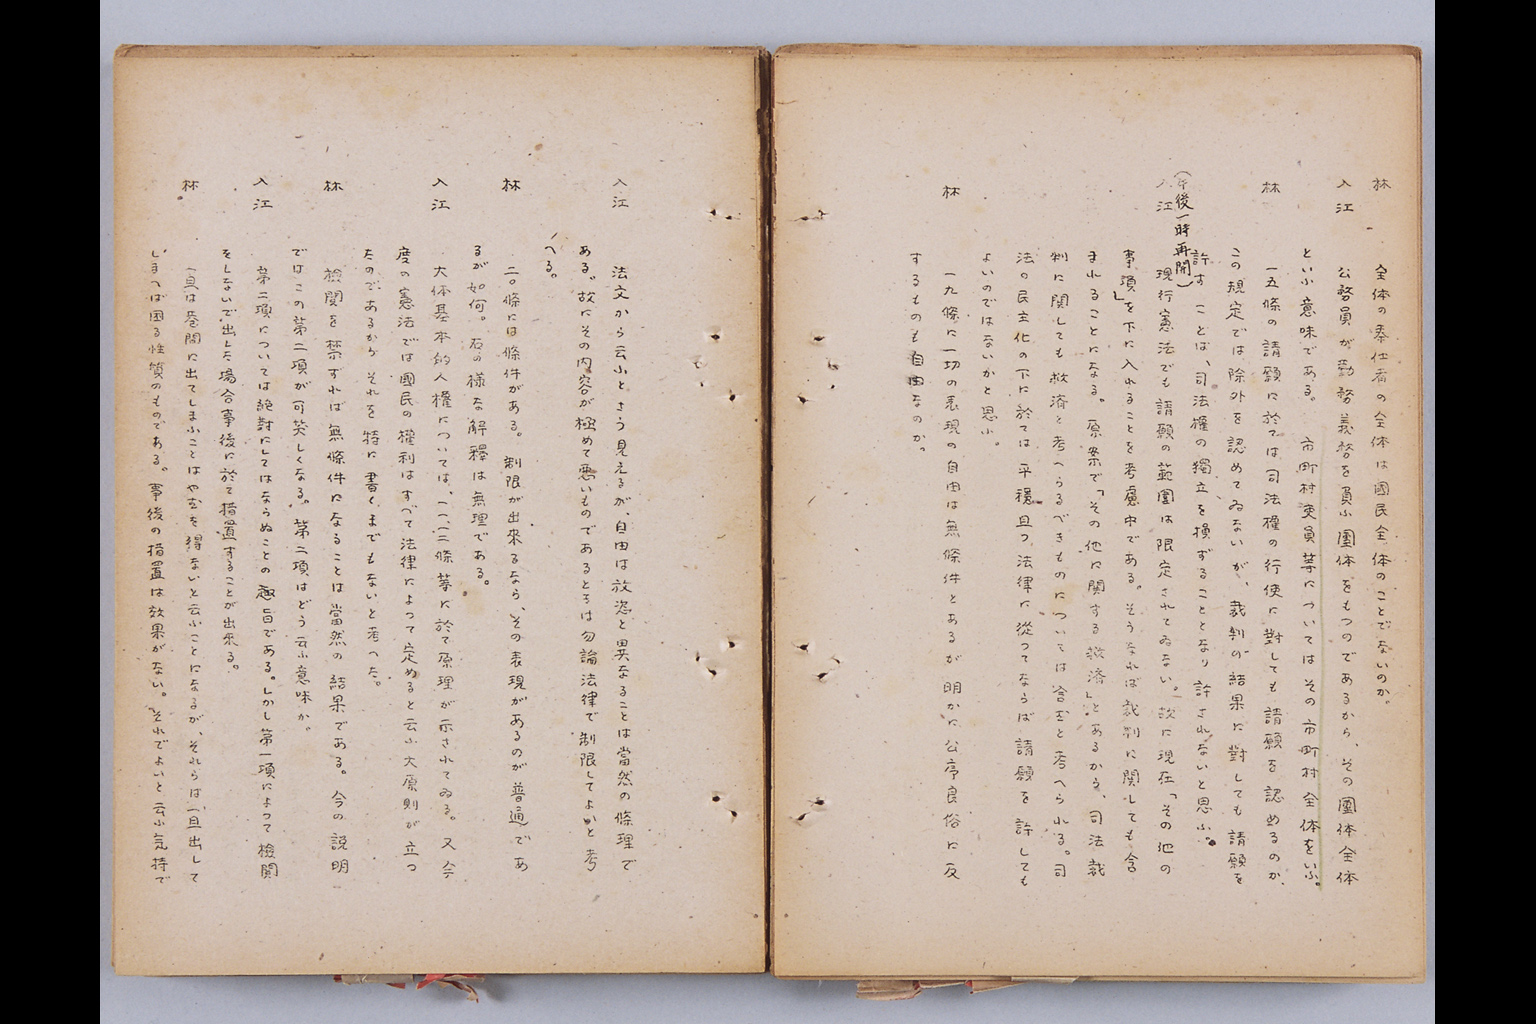 林　全体の奉仕者の全体は國民全体のことでないのか。
入江　公務員が勤務義務を負ふ團体をもつのであるから、その團体全体
といふ意味である。市町村吏員等についてはその市町村全体をいふ。
林　一五條の請願に於ては司法權の行使に對しても請願を認めるのか、
この規定では除外を認めてゐないが、裁判の結果に對しても請願を
許すことは、司法權の獨立を損ずることとなり許されないと思ふ。
（午後一時再開）
入江　現行憲法でも請願の範圍は限定されてゐない。故に現在「その他の
事項」を下に入れることを考慮中である。そうなれば裁判に関しても含
まれることになる。原案で「その他に関する救済」とあるから、司法裁
判に関しても救済と考へらるべきものについては含むと考へられる。司
法の民主化の下に於ては平穏且つ法律に從つてならば請願を許しても
よいのではないかと思ふ。
林　一九條に一切の表現の自由は無條件とあるが明かに公序良俗に反
するものも自由なのか。
入江　法文から云ふとさう見えるが、自由は放恣と異なることは當然の條理で
ある。故にその内容が極めて悪いものであるときは勿論法律で制限してよいと考
へる。
林　二〇條には條件がある。制限が出來るなら、その表現があるのが普通であ
るが如何。右の様な解釋は無理である。
入江　大体基本的人權については、一一、一二條等に於て原理が示されてゐる。又今
度の憲法では國民の權利はすべて法律によつて定めると云ふ大原則が立つ
たのであるからそれを特に書くまでもないと考へた。
林　檢閲を禁ずれば無條件になることは當然の結果である。今の説明
ではこの第二項が可笑しくなる。第二項はどう云ふ意味か。
入江　第二項については絶對にしてはならぬことの趣旨である。しかし第一項によつて檢閲
をしないで出した場合事後に於て措置することが出來る。
林　一旦は巷間に出てしまふことはやむを得ないと云ふことになるが、それらは一旦出して
しまへば困る性質のものである。事後の措置は效果がない。それでよいと云ふ気持で